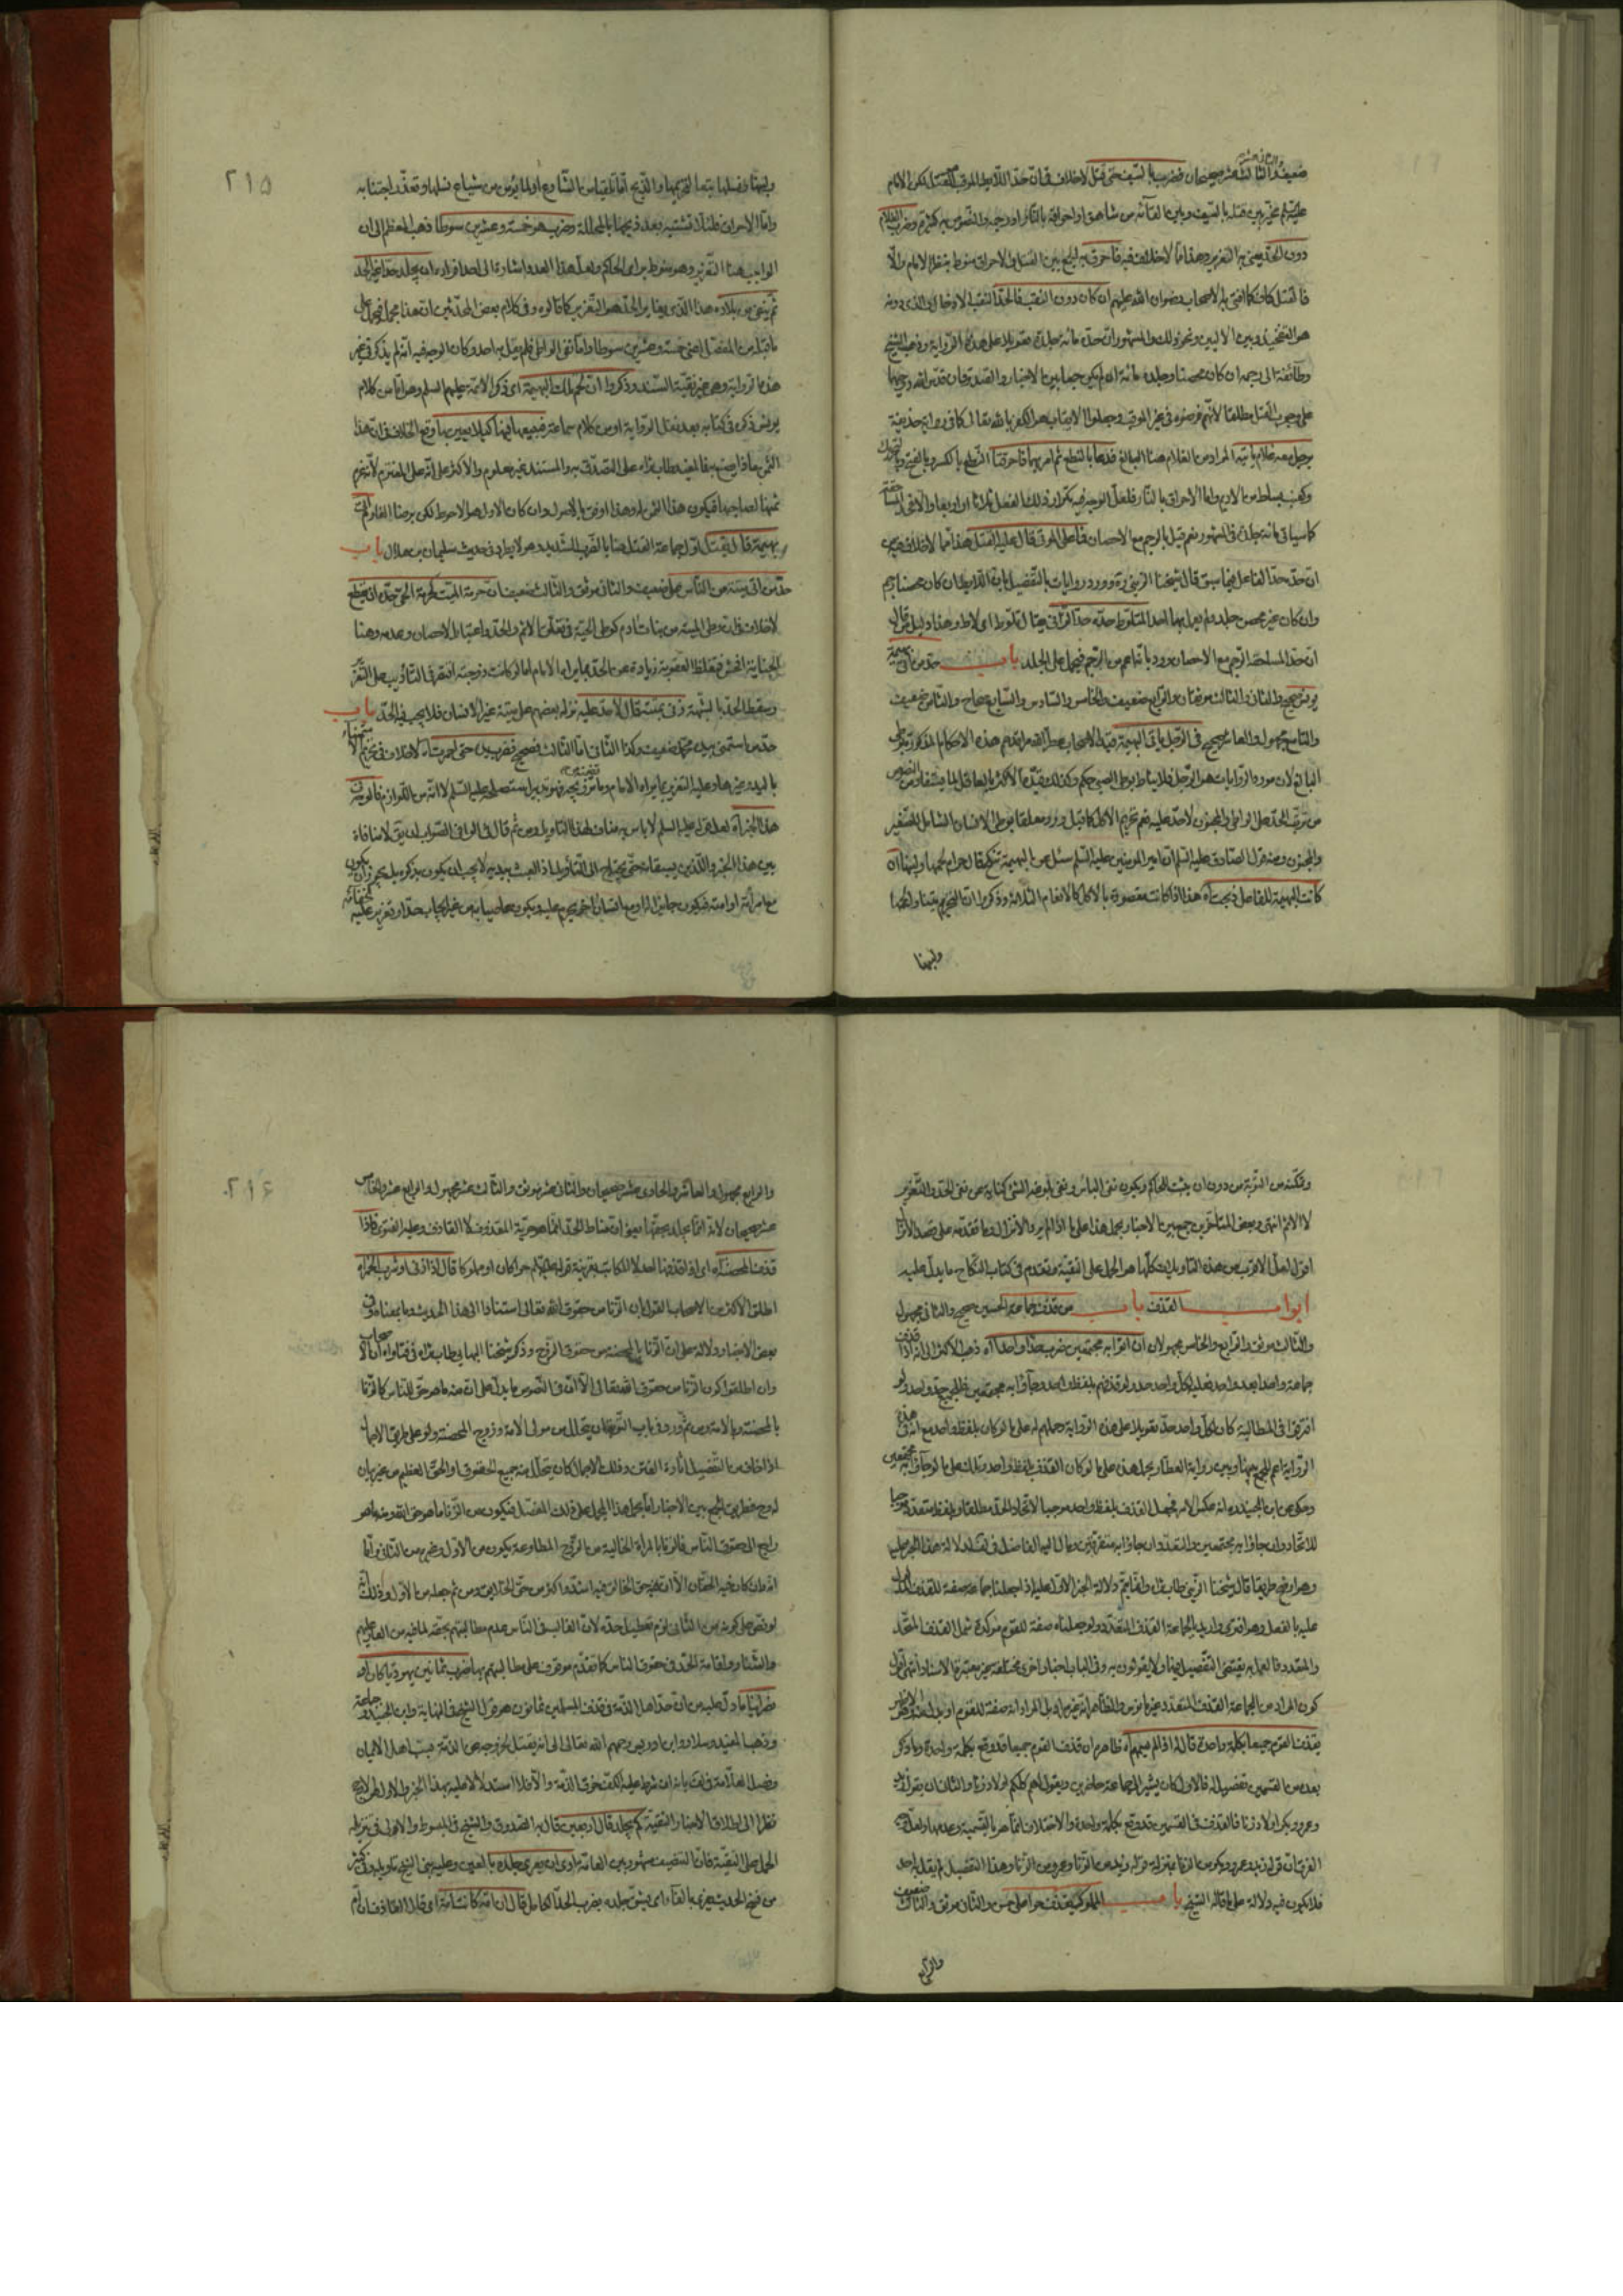 ضعيف والثالث عشر صحيحان فضرب بالسيف حتى قتل لا خلاف في ان حد اللايط الموقب القتل لكن الامام
عليه السلم مخير بين قتله بالسيف وبين القائه من شاهق او احراقه بالنار او رجمه والنصوص به كثيرة وضرب الغلام
دون الحد يعني به التعزير وهذا مما لا خلاف فيه فاحرق به الجمع بين القتل والاحراق منوط بنظر الامام والا
فالقتل كاف كما افتى به الاصحاب رضوان الله عليهم ان كان دون الثقب فالحد الثقب الادخال والذي دونه
هو التفخيذ وبين الاليين ونحو ذلك والمشهور ان حده مائة جلدة تعويلا على هذه الرواية وذهب الشيخ
وطائفة الى رجمه ان كان محصنا وجلده مائة ان لم يكن جمعا بين الاخبار والصدوقان قدس الله روحيهما
على وجوب القتل مطلقا لانهم فرضوه في غير الموقب وجعلوا الايقاب هو الكفر بالله تعالى كما في رواية حذيفة
برجل معه غلام ياتيه المراد من الغلام هنا البالغ فدعا بالنطع ثم امر بهما فاحرقتا النطع بالكسر وبالفتح وبالتحريك
وكعنب بساط من الاديم واما الاحراق بالنار فلعل الوجه فيه تكرار ذلك الفعل ثلاثا او اربعا
كما سياتي مائة جلدة في المشهور نعم قيل بالرجم مع الاحصان فاعلى الموقب قال عليه القتل هذا مما لا خلاف فيه
ان حده حد الفاعل فيما سبق قال شيخنا الزيني ره وورد روايات بالتفصيل بان اللايط ان كان محصنا رجم
وان كان غير محصن جلد ولم يعمل بها احد المتلوط حده حد الزاني
ان حد المساحقة الرجم مع الاحصان ورد بانه اعم من الرجم فيحمل على الجلد باب حد من اتى بهيمة
يونس صحيح والثاني والثالث موثقان والرابع ضعيف والخامس والسادس والسابع صحاح والثامن ضعيف
والتاسع مجهول والعاشر صحيح في الرجل ياتي البهيمة قيد الاصحاب
البالغ لان مورد الروايات هو الرجل فلا يناط بوطي الصبي حكم وكذلك قيد الاكثر بالعاقل لما يستفاد من النصوص
من ترتب الحد على الواطي والمجنون لا حد عليه نعم تحريم الاكل كما قيل ورد معلقا بوطي الانسان الشامل للصغير
والمجنون ومنه قول الصادق عليه السلم ان امير المومنين عليه السلم سئل عن البهيمة تنكح قال حرام لحمها ولبنها ان
كانت البهيمة للفاعل ذبحت آه هذا اذا كانت مقصودة بالاكل كالانعام الثلاثة وذكروا ان التحريم يتناول لحمها
ولبنها
٢١٥
ولبنها ونسلها تبعا لتحريمها والذبح اما تلقيا من الشارع او لما يؤمن من شياع نسلها وتعذر اجتنابه
واما الاحراق فلئلا تشتبه بعد ذبحها بالمحللة وضرب هو خمسة وعشرين سوطا ذهب المعظم الى ان
الواجب هنا التعزير وهو منوط براى الحاكم ولعل هذا العدد اشارة الى احد افراده ان يجلد حدا غير الحد
ثم ينفى من بلاده هذا الذي يغاير الحد هو التعزير كما قالوه وفي كلام بعض المحدثين ان هذا مجمل فيحمل على
ما قبله من المفصل اعني خمسة وعشرين سوطا واما نفي الواطي فلم يقل به احد وكان الوجه فيه انه لم يذكر في غير
هذه الرواية وهي غير نقية السند وذكروا ان لحم تلك البهيمة اى ذكر الائمة عليهم السلم وهو اما من كلام
يونس ذكره في كتابه بعد نقل الرواية او من كلام سماعة فيبيعها فيها كيلا يعير بها وقع الخلاف في ان هذا
الثمن ماذا يصنع به فالمفيد طاب ثراه على التصدق به والمستند غير معلوم والاكثر على انه على المغترم لانه غرم
ثمنها لصاحبها فيكون هذا الثمن له وهذا اوفق بالاصول وان كان الاول هو الاحوط لكن برضا الغارم
بهيمة قال يقتل اول جماعة القتل هنا بالضرب الشديد وهو لا يطرد في حديث سليمان بن هلال باب
حد من اتى ميتة من الناس على ضعيف والثاني موثق والثالث ضعيف ان حرمة الميت كحرمة الحي حده ان تقطع
لا خلاف في ان وطي الميتة من بنات ادم كوطي الحية في تعلق الاثم والحد واعتبار الاحصان وعدمه وهنا
الجناية افحش فتغلظ العقوبة زيادة عن الحد بما يراه الامام اما لو كانت زوجته اقتصر في التاديب على التعزير
وسقط الحد بالشبهة زنى بميتة قال لا حد عليه نزله بعضهم على ميتة غير الانسان فلا يجب فيه الحد باب
حد من استمنى بيده مجهول ضعيف وكذا الثاني اما الثالث فصحيح فضرب يده حتى احمرت آه لا خلاف في تحريم الاستمناء
باليد وغيرها وعليه التعزير بما يراه الامام وما تضمنه من تزويجه فهو تدبير استصلحه عليه السلم لا انه من اللوازم
هذا الخبر آه لعل قوله عليه السلم لا باس به مناف لهذا التاويل ومن ثم قال في الوافي الصواب ان يقول لا منافاة
بين هذا الخبر واللذين يسبقانه حتى يحتاج الى التاويل اذ العبث بيديه لا يجب ان يكون بذكره بل يجوز ان يكون
مع امرأته او امته فيكون جائزا او مع انسان اخر يحرم عليه ويكون عاصيا به من غير ايجاب حد او تعزير عليه
وتمكنه من التوبة من دون ان يثبت للحاكم ويكون نفي الباس ونفي بلوغه الشئ كناية عن نفي الحد والتعزير
لا الاثم انتهى وبعض المتاخرين جمع بين الاخبار بحمل هذا على ما اذا لم يرد الانزال وما تقدمه على قصد الانزال
اقول لعل الاقرب من هذه التاويلات كلها هو الحمل على التقية وتقدم في كتاب النكاح ما يدل عليه
ابواب القذف باب من قذف جماعة الحسين صحيح والثاني مجهول
والثالث موثق والرابع والخامس مجهولان ان اتوا به مجتمعين ضرب حدا واحدا آه ذهب الاكثر الى انه اذا قذف
جماعة واحدا بعد واحد فعليه لكل واحد حد ولو قذفهم بلفظ واحد وجاؤا به مجتمعين فللجميع حد واحد ولو
افترقوا في المطالبة كان لكل واحد حد تعويلا على هذه الرواية وحملهم له على ما لو كان بلفظ واحد مع انه في هذه
الرواية اعم للجمع بينها وبين رواية العطار بحمل هذه على ما لو كان القذف بلفظ واحد وتلك على ما لو جاؤا به مجتمعين
وحكي عن ابن الجنيد ره انه عكس الامر فجعل القذف بلفظ واحد موجبا لاتحاد الحد مطلقا وبلفظ متعدد موجبا
للاتحاد ان جاؤا به مجتمعين والتعدد ان جاؤا به متفرقين ومال اليه الفاضل في لف لدلالة هذا الخبر عليه
وهو اوضح طريقا قال شيخنا الزيني طاب ثراه وانما يتم دلالة الخبر الاول عليه اذا جعلنا جماعة صفة للقذف
عليه بالفعل وهو افترى واريد بالجماعة القذف المتعدد ولو جعلناه صفة للقوم مؤكدة شمل القذف المتحد
والمتعدد فالعمل به يقتضي التفصيل فيهما ولا يقولون به وفي الباب اخبار اخرى مختلفة غير معتبرة الاسناد انتهى اقول
كون المراد من الجماعة القذف المتعدد غير مانوس والظاهر انه غير مراد بل المراد انه صفة للقوم
يقذف القوم جميعا بكلمة واحدة قال له اذا لم يسمهم آه ظاهر ان قذف القوم جميعا قد وقع بكلمة واحدة وما ذكر
بعد من القسمين تفصيل له فالاول كان يشير الى جماعة حاضرين ويقول لهم كلكم اولاد زنا والثاني ان يقول زيد
وعمرو وبكر اولاد زنا فالقذف في القسمين قد وقع بكلمة واحدة والاختلاف انما هو بالتسمية وعدمها
الفرق ان قوله زيد وعمرو وبكر من الزنا بمنزلة قوله زيد من الزنا وعمرو من الزنا وهذا التفصيل لم يقل به احد
فلا يكون فيه دلالة على ما قاله الشيخ باب المملوك يقذف حرا على حسن والثاني موثق والثالث ضعيف
والرابع
٢١٦
والرابع مجهول والعاشر والحادي عشر صحيحان والثاني عشر موثق والثالث عشر مجهول والرابع عشر والخامس
عشر صحيحان لانه انما يجلد بحقها يعني ان مناط الحد انما هو حرية المقذوف لا القاذف وعليه الفتوى فاذا
قذف المحصنة آه اى اذا قذفها احد لا المكاتب بقرينة قوله عليه السلم حرا كان او مملوكا قال اذا زنى او شرب الخمر آه
اطلق الاكثر من الاصحاب القول بان الزنا من حقوق الله تعالى استنادا الى هذا الحديث وما بمعناه وفي
بعض الاخبار دلالة على ان الزنا بالمحصنة من حقوق الزوج وذكر شيخنا البهائي طاب ثراه في فتاواه ان الاصحاب
وان اطلقوا كون الزنا من حقوق الله تعالى الا ان في النصوص ما يدل على ان منه ما هو حق للناس كالزنا
بالمحصنة وبالامة ومن ثم ورد في باب التوبة ان يتحلل من مولى الامة وزوج المحصنة ولو على طريق الاجمال
اذا خاف من التفصيل اثارة الفتن وذلك الاجمال كان يتحلل منه جميع الحقوق والحق العظيم من غير بيان
له وح فطريق الجمع بين الاخبار اما بحمل هذا المجمل على ذلك المفصل فيكون من الزنا ما هو حق الله ومنه ما هو
راجع الى حقوق الناس فالزنا بالمراة الخالية من الزوج المطاوعة يكون من الاول وغيره من الثاني واما
انه وان كان فيه الحقان الا ان تغير حق الخالق فيه اشد واكثر من حق الخلايق ومن ثم جعله من الاول وذلك انه
لو نص على كونه من الثاني لزم تعطيل حده لان الغالب في الناس عدم مطالبتهم بحقه لما فيه من العار عليهم
والشنار واقامة الحد في حقوق الناس كما تقدم موقوف على مطالبتهم بها ضرب ثمانين يهوديا كان او
نصرانيا ما دل عليه من ان حد اهل الذمة في قذف المسلمين ثمانون هو قول الشيخ في النهاية وابن الجنيد وجماعة
وذهب المفيد وسلار وابن ادريس رحمهم الله تعالى الى انه يقتل لخروجه عن الذمة بسب اهل الايمان
وفصل العلامة في لف بانه ان شرط عليه الكف خرق الذمة والا فلا استدلالا عليه بهذا الخبر والاولى طرح لانه
نظرا الى اطلاق الاخبار والتقية كم يجلد قال اربعين قال به الصدوق والشيخ في المبسوط والاولى في تنزيله
الحمل على التقية فان التنصيف مشهور بين العامة
من نسخ الحديث يفرى بالفاء اى يشق جلده بضرب الحد الكامل قال ان امة كانت امة اى قال القاذف ان ام